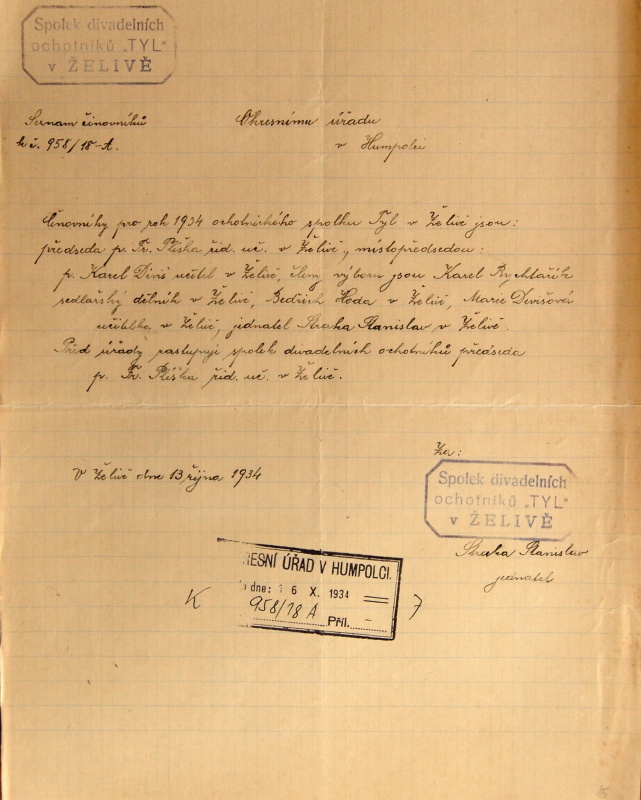 Spolek divadelních
ochotníků „TYL“
v ŽELIVĚ
Seznam činovníků
k č. 958/18-A.
Okresnímu úřadu
v Humpolci
Činovníky pro rok 1934 ochotnického spolku Tyl v Želivě jsou:
předseda p. Fr. Pliška říd. uč. v Želivě, místopředsedou:
p. Karel Diviš učitel v Želivě, členy výboru jsou Karel Rychtařík
sedlářský dělník v Želivě, Bedřich Hoda v Želivě, Marie Divišová
učitelka v Želivě, jednatel Straka Stanislav v Želivě.
Před úřady zastupuje spolek divadelních ochotníků předseda
p. Fr. Pliška říd. uč. v Želivě.
V Želivě dne 13 října 1934
Za:
Spolek divadelních
ochotníků „TYL“
v ŽELIVĚ
Straka Stanislav
jednatel
RESNÍ ÚŘAD V HUMPOLCI.
dne: 16 X. 1934
958/18 A
Příl. –
K
7